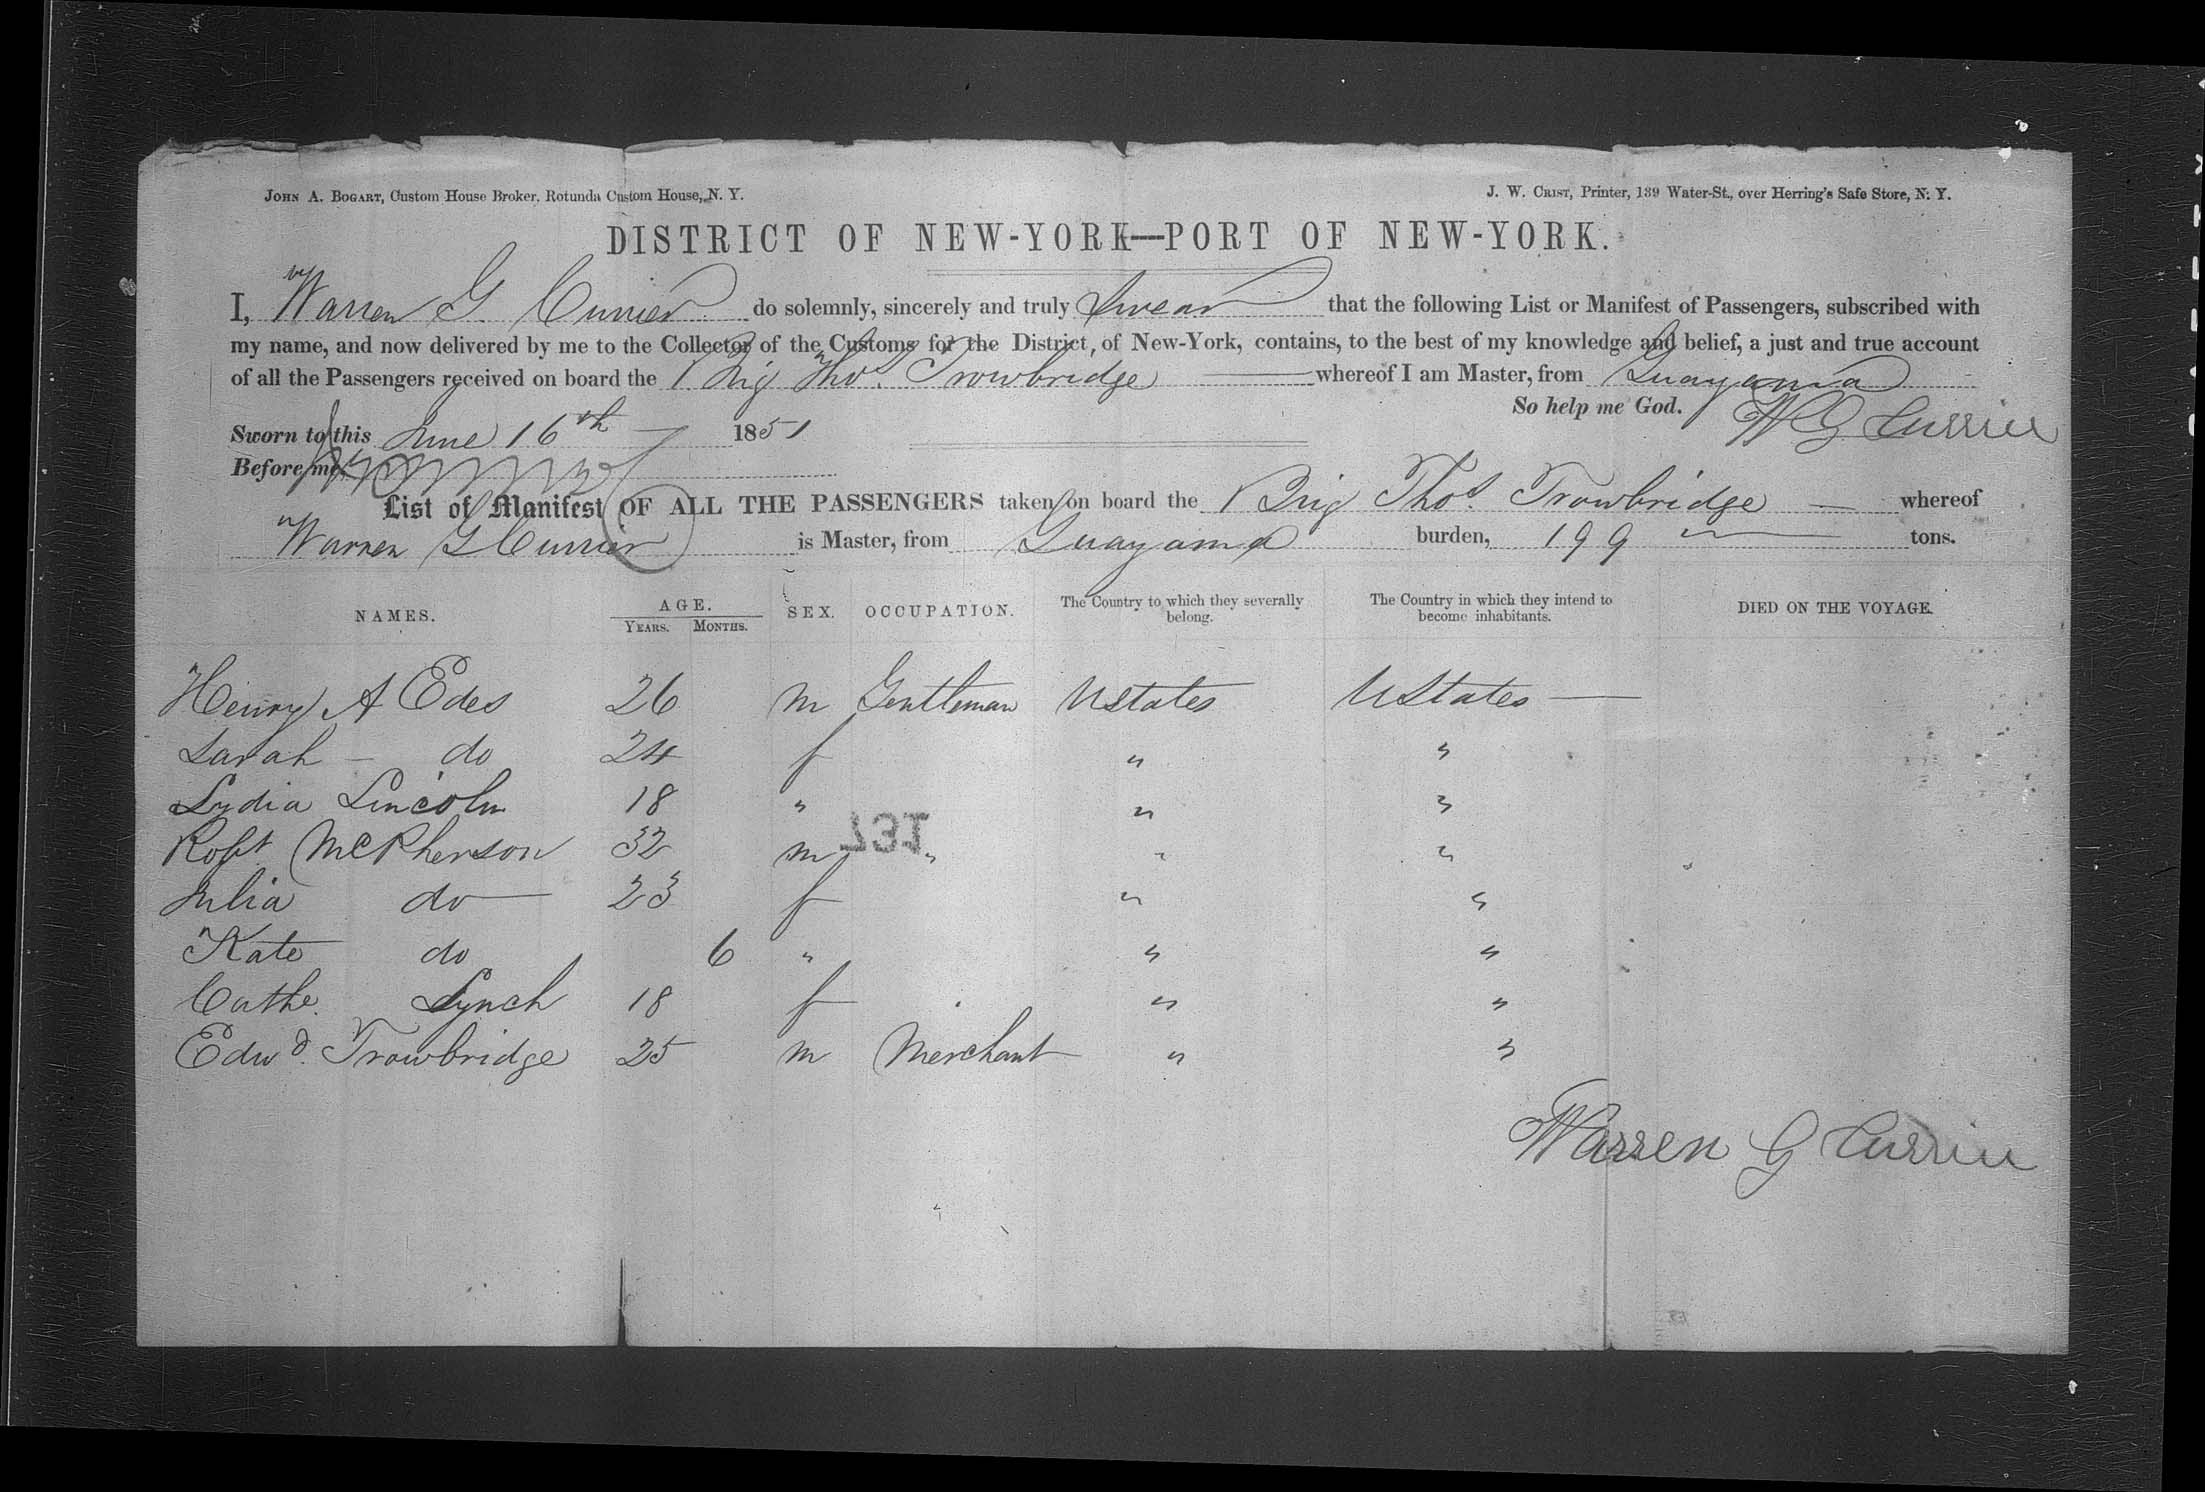 JOHN A. BOGART, Custom House Broker, Rotunda Custom House, N. Y.
J. W. CRIST, Printer, 139 Water-St., over Herring's Safe Store, N. Y.
DISTRICT OF NEW-YORK—PORT OF NEW-YORK.
I, Warren G. Currier do solemnly, sincerely and truly swear that the following List or Manifest of Passengers, subscribed with
my name, and now delivered by me to the Collector of the Customs for the District, of New-York, contains, to the best of my knowledge and belief, a just and true account
of all the Passengers received on board the Brig Thos. Trowbridge whereof I am Master, from Guayama
So help me God. W G Currier
Sworn to this June 16th 1851
Before me,
List of Manifest OF ALL THE PASSENGERS taken on board the Brig Thos. Trowbridge whereof
Warren G Currier is Master, from Guayama burden, 199 tons.
NAMES. AGE. SEX. OCCUPATION. The Country to which they severally belong. The Country in which they intend to become inhabitants. DIED ON THE VOYAGE.
YEARS. MONTHS.
Henry A Edes 26 m Gentleman UStates UStates
Sarah - do 24 f " "
Lydia Lincoln 18 " " "
Robt McPherson 32 m " " "
Julia do 23 f " "
Kate do 6 " " "
Cathe. Lynch 18 f " "
Edwd. Trowbridge 25 m Merchant " "
131
Warren G Currier